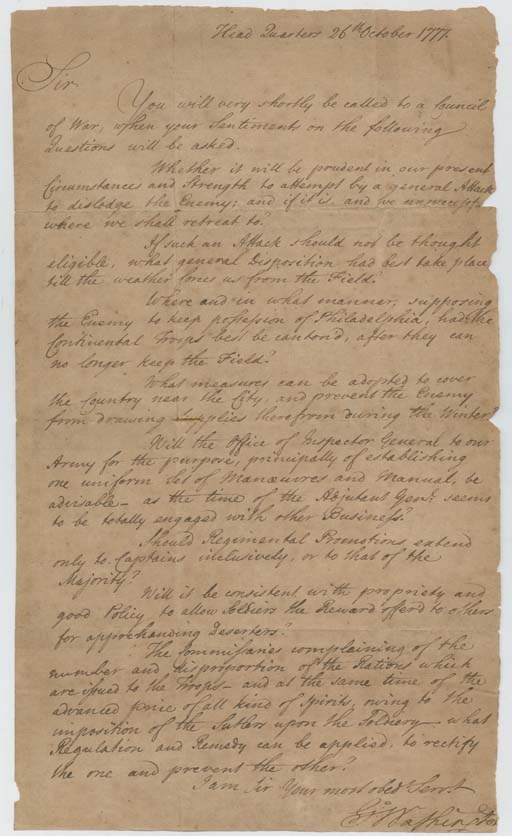 Head Quarters 26th October 1777.
Sir
You will very shortly be called to a Council
of War, when your Sentiments on the following
Questions will be asked.
Whether it will be prudent in our present
Circumstances and Strength to attempt by a general Attack
to dislodge the Enemy; and if it is, and we unsuccessf
where we shall retreat to?
If such an Attack should not be thought
eligible, what general disposition had best take place
till the weather forces us from the Field?
Where and in what manner, supposing
the Enemy to keep possession of Philadelphia, had the
Continental Troops best be canton'd, after they can
no longer keep the Field?
What measures can be adopted to cover
the Country near the City, and prevent the Enemy
from drawing Supplies therefrom during the Winter
Will the Office of Inspector General to our
Army for the purpose, principally of establishing
one uniform Set of Manœuvres and Manual, be
advisable – as the time of the Adjutant Genl. seems
to be totally engaged with other Business?
Should Regimental Promotions extend
only to Captains inclusively, or to that of the
Majority?
Will it be consistent with propriety and
good Policy to allow Soldiers the Reward offerd to others
for apprehending Deserters?
The Commissaries complaining of the
number and disproportion of the Rations which
are issued to the Troops – and at the same time of the
advanced price of all kind of Spirits, owing to the
imposition of the Sutlers upon the Soldiery – what
Regulation and Remedy can be applied, to rectify
the one and prevent the other?
I am Sir Your most obedt Servt
Go Washington